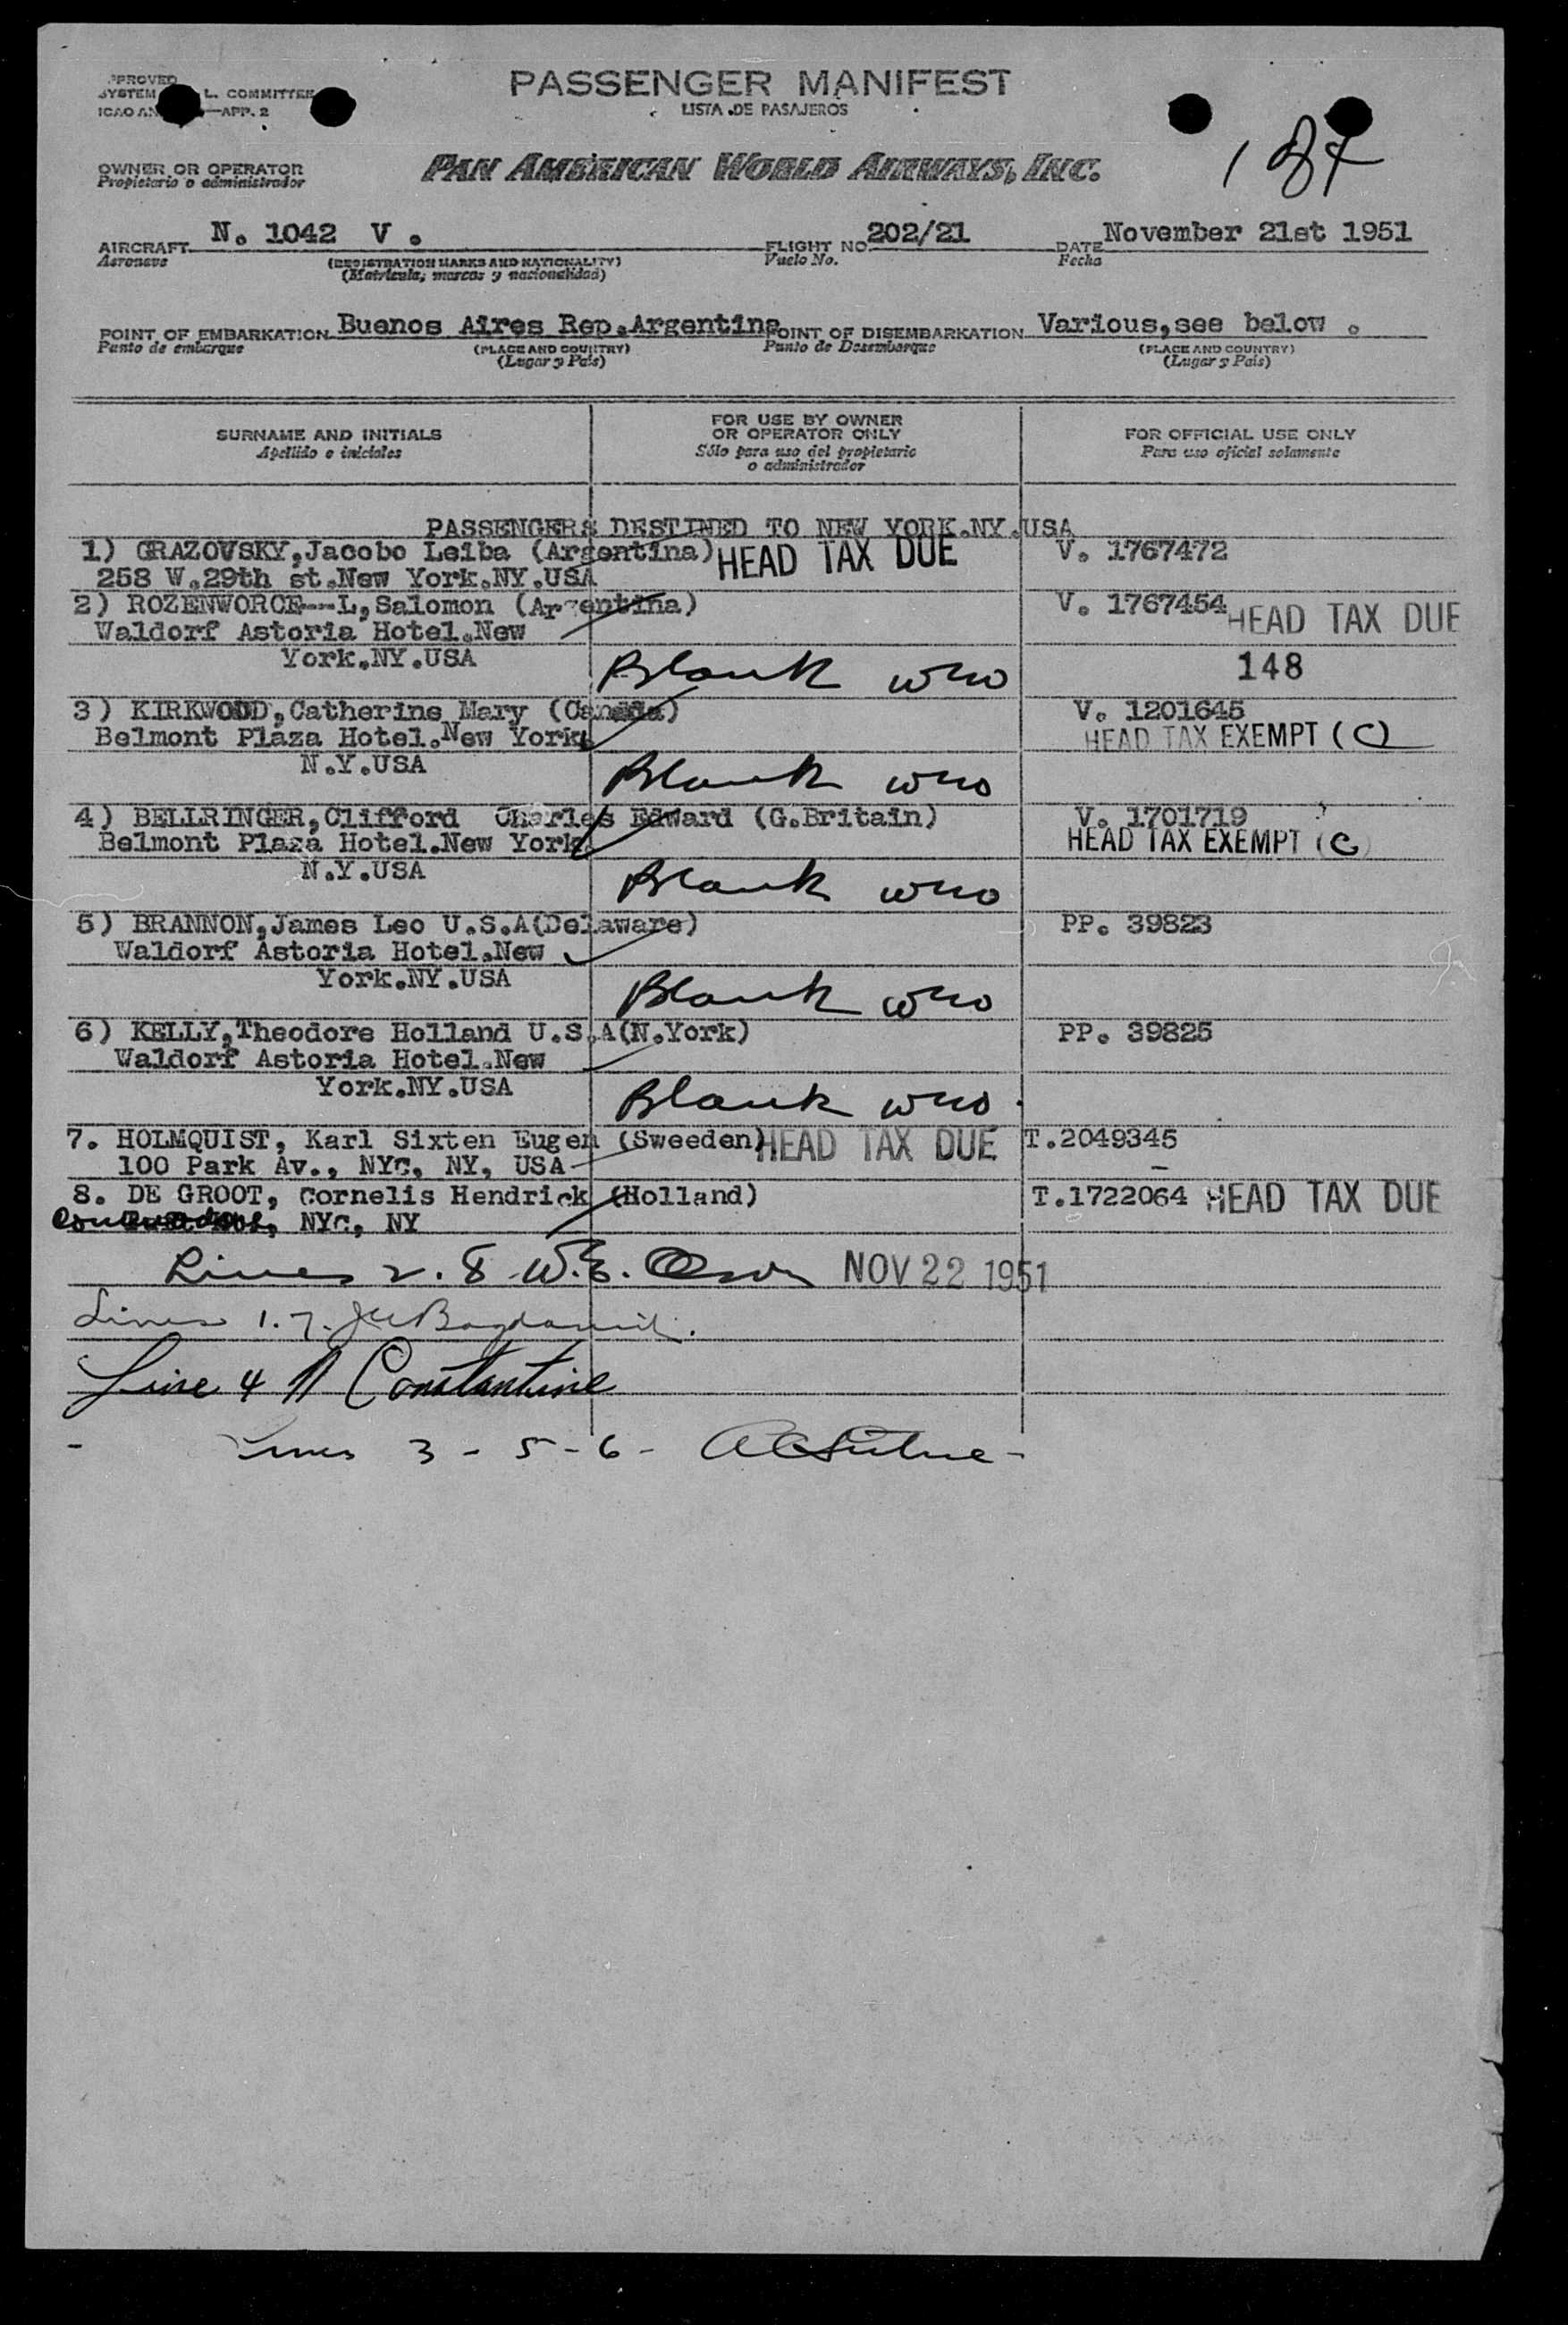 PPROVED
SYSTEM L. COMMITTEE
ICAO AN —APP. 2
PASSENGER MANIFEST
LISTA DE PASAJEROS
OWNER OR OPERATOR
Propietario o administrador
PAN AMERICAN WORLD AIRWAYS, INC.
AIRCRAFT N. 1042 V . FLIGHT NO 202/21 DATE November 21st 1951
Aeronave (REGISTRATION MARKS AND NATIONALITY) Vuelo No. Fecha
(Matrícula, marcas y nacionalidad)
POINT OF EMBARKATION Buenos Aires Rep.Argentina POINT OF DISEMBARKATION Various,see below .
Punto de embarque (PLACE AND COUNTRY) Punto de Desembarque (PLACE AND COUNTRY)
(Lugar y País) (Lugar y País)
SURNAME AND INITIALS
Apellido e iniciales
FOR USE BY OWNER
OR OPERATOR ONLY
Sólo para uso del propietario
o administrador
FOR OFFICIAL USE ONLY
Para uso oficial solamente
PASSENGERS DESTINED TO NEW YORK.NY.USA
1) GRAZOVSKY,Jacobo Leiba (Argentina) HEAD TAX DUE V. 1767472
258 W.29th st.New York.NY.USA
2) ROZENWORCE---L,Salomon (Argentina) V. 1767454 HEAD TAX DUE
Waldorf Astoria Hotel.New
York.NY.USA Blank 148
3) KIRKWOOD,Catherine Mary (Canada) V. 1201645
Belmont Plaza Hotel.New York. HEAD TAX EXEMPT (C)
N.Y.USA Blank
4) BELLRINGER,Clifford Charles Edward (G.Britain) V. 1701719
Belmont Plaza Hotel.New York. HEAD TAX EXEMPT (C)
N.Y.USA Blank
5) BRANNON,James Leo U.S.A(Delaware) PP. 39823
Waldorf Astoria Hotel.New
York.NY.USA Blank
6) KELLY,Theodore Holland U.S.A(N.York) PP. 39825
Waldorf Astoria Hotel.New
York.NY.USA Blank
7. HOLMQUIST, Karl Sixten Eugen (Sweeden) HEAD TAX DUE T.2049345
100 Park Av., NYC, NY, USA
8. DE GROOT, Cornelis Hendrick (Holland) T.1722064 HEAD TAX DUE
NYC, NY
Lines 2. 8 W.E. Olson NOV 22 1951
Lines 1. 7.
Line 4 N Constantine
Lines 3 - 5 - 6 -